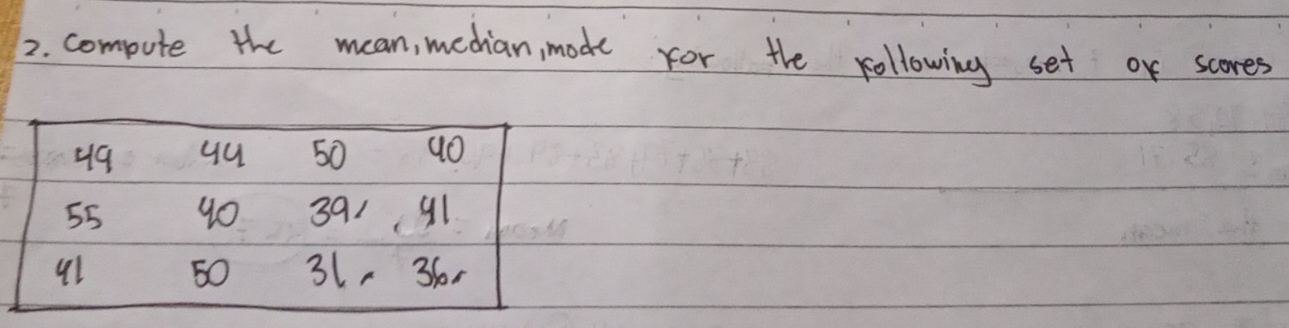 2. Compute the mean, median, mode for the following set of scores
49 44 50 40
55 40 39 41
41 50 31 36